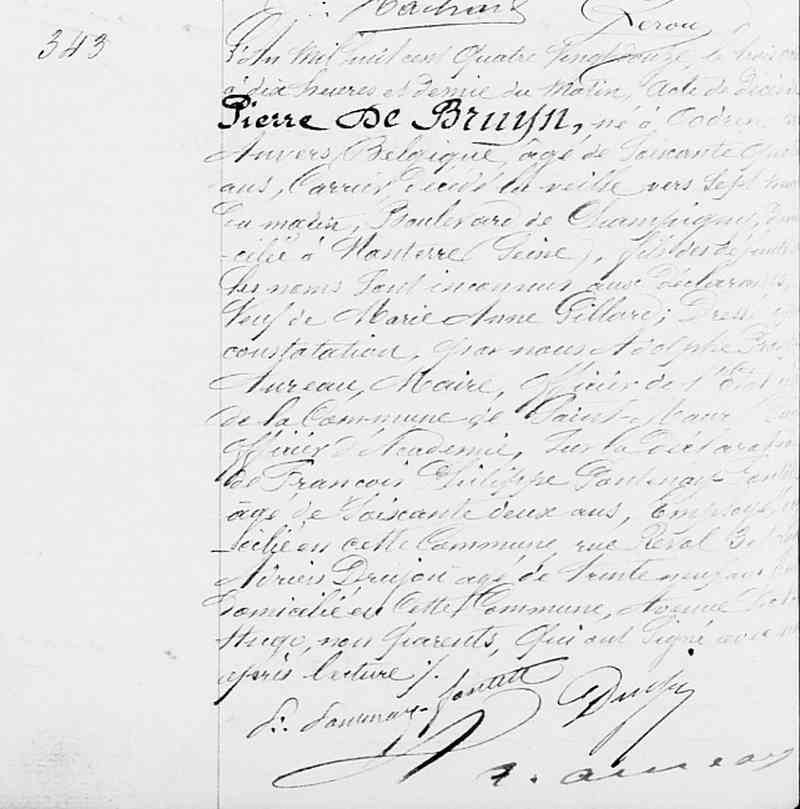 343
L'An Mil huit cent Quatre Vingt douze, le trois
à dix heures et demie du Matin, Acte de Décès
Pierre De Bruyn, né à
Anvers (Belgique) âgé de Soixante
ans, Carrier, décédé la veille vers Sept
du matin, Boulevard de Champigny,
-cilié à Nanterre (Seine), fils des défunts
Les noms Sont inconnus aux Déclarants,
Veuf de Marie Anne Gillard; Dressé
constatation, par nous Adolphe
Aureau, Maire, Officier de l'Etat
de la Commune de Saint-Maur
Officier d'Académie, Sur la Déclaration
de François Philippe
âgé de Soixante deux ans, Employé,
-icilié en cette Commune, rue
Adrien Drujon âgé de trente neuf ans
domicilié en Cette Commune, Avenue
Hugo, non parents, Qui ont Signé avec
après lecture ./.